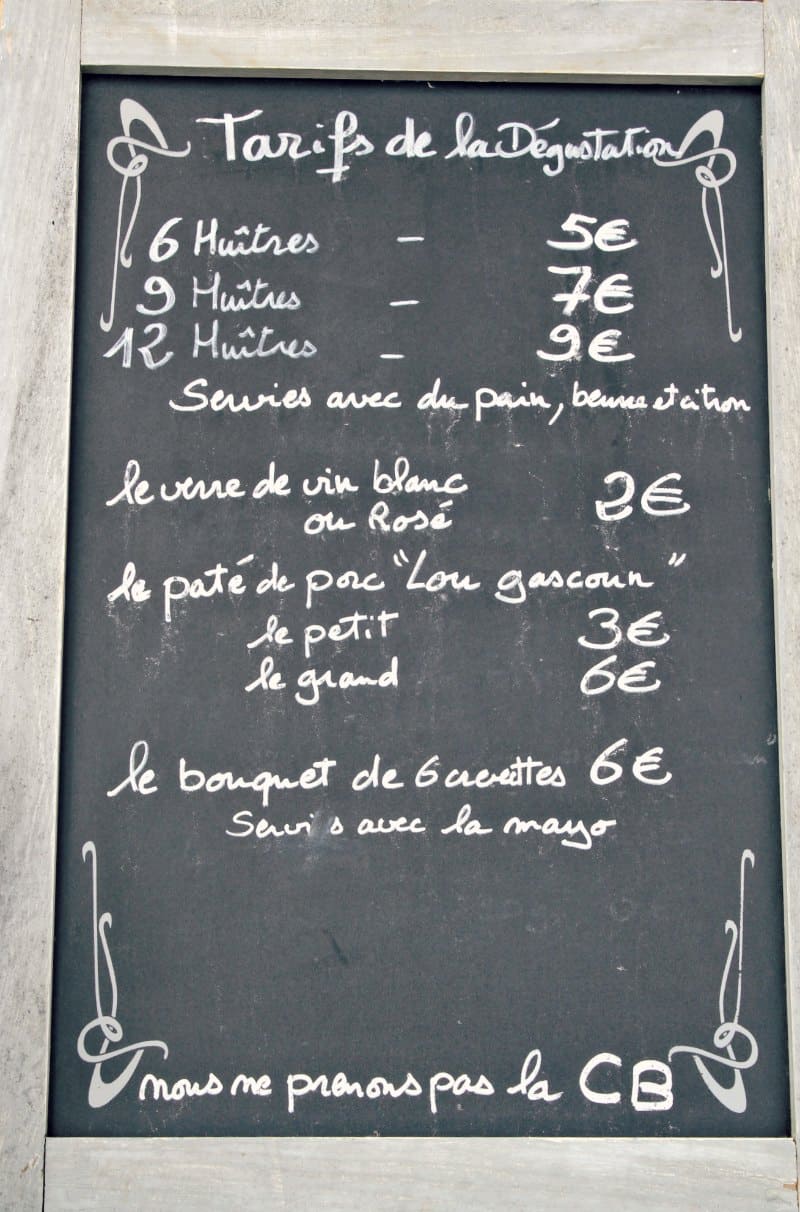 Tarifs de la Dégustation
6 Huîtres – 5€
9 Huîtres – 7€
12 Huîtres – 9€
Servies avec du pain, beurre et citron
le verre de vin blanc 2€
ou Rosé
le paté de porc "Lou gascoun"
le petit 3€
le grand 6€
le bouquet de 6 crevettes 6€
Servi s avec la mayo
nous ne prenons pas la CB